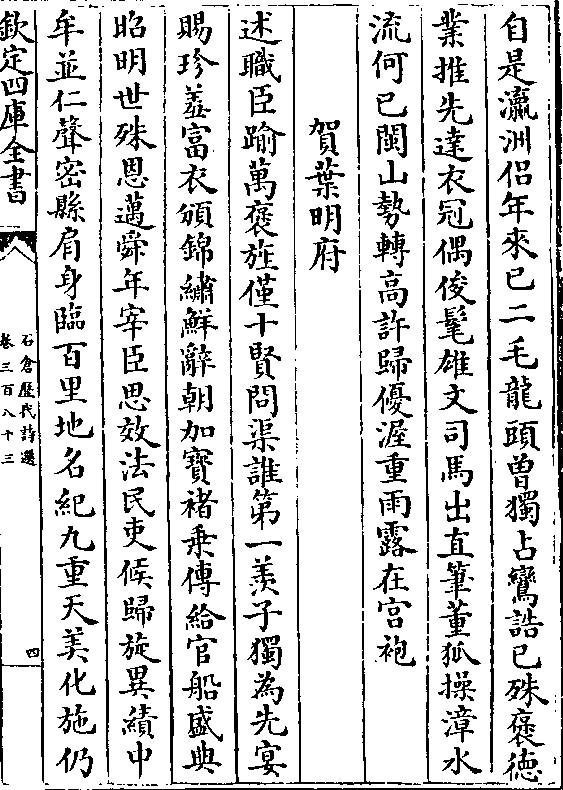 自是瀛洲侣年來已二毛龍頭曾獨占鸞誥已殊褒徳
業推先達衣冠偶俊髦雄文司馬出直筆董狐操漳水
流何已閩山勢轉高許歸優渥重雨露在宮袍
賀葉明府
述職臣踰萬褒旌僅十賢問渠誰第一羡子獨為先宴
賜珍羞富衣頒錦繡鮮辭朝加寳禇乗傳給官船盛典
昭明世殊恩邁舜年宰臣思效法民吏候歸旋異績中
牟並仁聲密縣肩身臨百里地名紀九重天美化施仍
欽定四庫全書
石倉歴代詩選
卷三百八十三
四